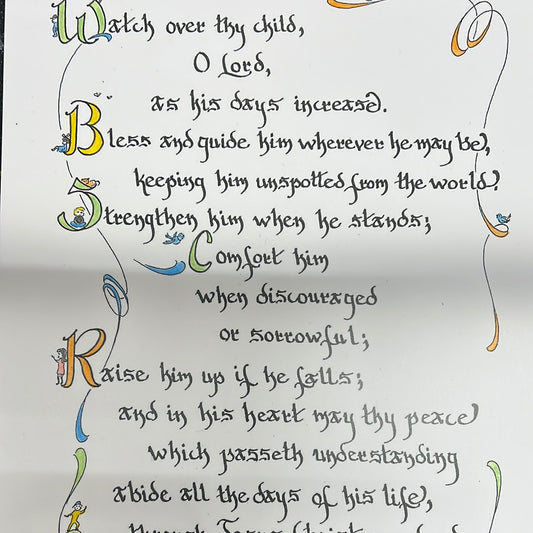 Watch over thy child,
O Lord,
as his days increase.
Bless and guide him wherever he may be,
keeping him unspotted from the world.
Strengthen him when he stands;
Comfort him
when discouraged
or sorrowful;
Raise him up if he falls;
and in his heart may thy peace
which passeth understanding
abide all the days of his life,
through Jesus Christ our Lord